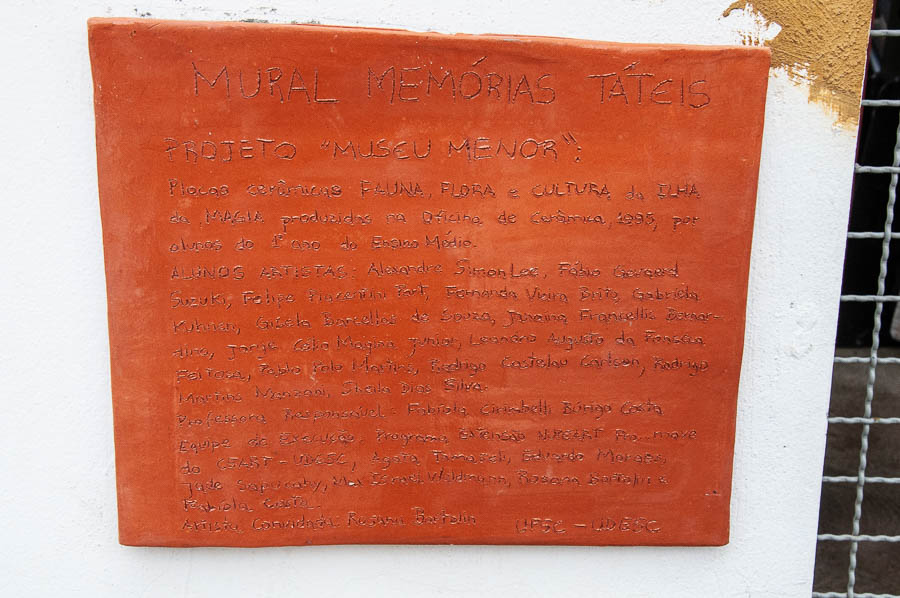 MURAL MEMÓRIAS TÁTEIS
PROJETO "MUSEU MENOR":
Placas cerâmicas FAUNA, FLORA e CULTURA da ILHA
da MAGIA produzidas na Oficina de Cerâmica, 1995, por
alunos do 1º ano do Ensino Médio.
ALUNOS ARTISTAS: Alexandre Simon Lee, Fábio
Suzuki, Felipe Piacentini, Fernanda Vieira Brito, Gabriela
Kuhnen, Gisela Barcellos de Souza, Janaina Francellis Bernar-
dino, Jorge Célio Magina Junior, Leandro Augusto da Fonseca
Feitosa, Pablo Polo Martins, Rodrigo Castelan Carlson, Rodrigo
Martins Monzani, Sheila Dias Silva.
Professora Responsável: Fabíola Cirimbelli Búrigo Costa
Equipe de Execução, Programa Extensão NUPEART
do CEART - UDESC, Ágata Tomaselli, Eduardo Moraes,
Jade Israel Waldmann, Rosana Bortolin e
Fabíola Costa.
Artista Convidada Rosana Bortolin UFSC - UDESC